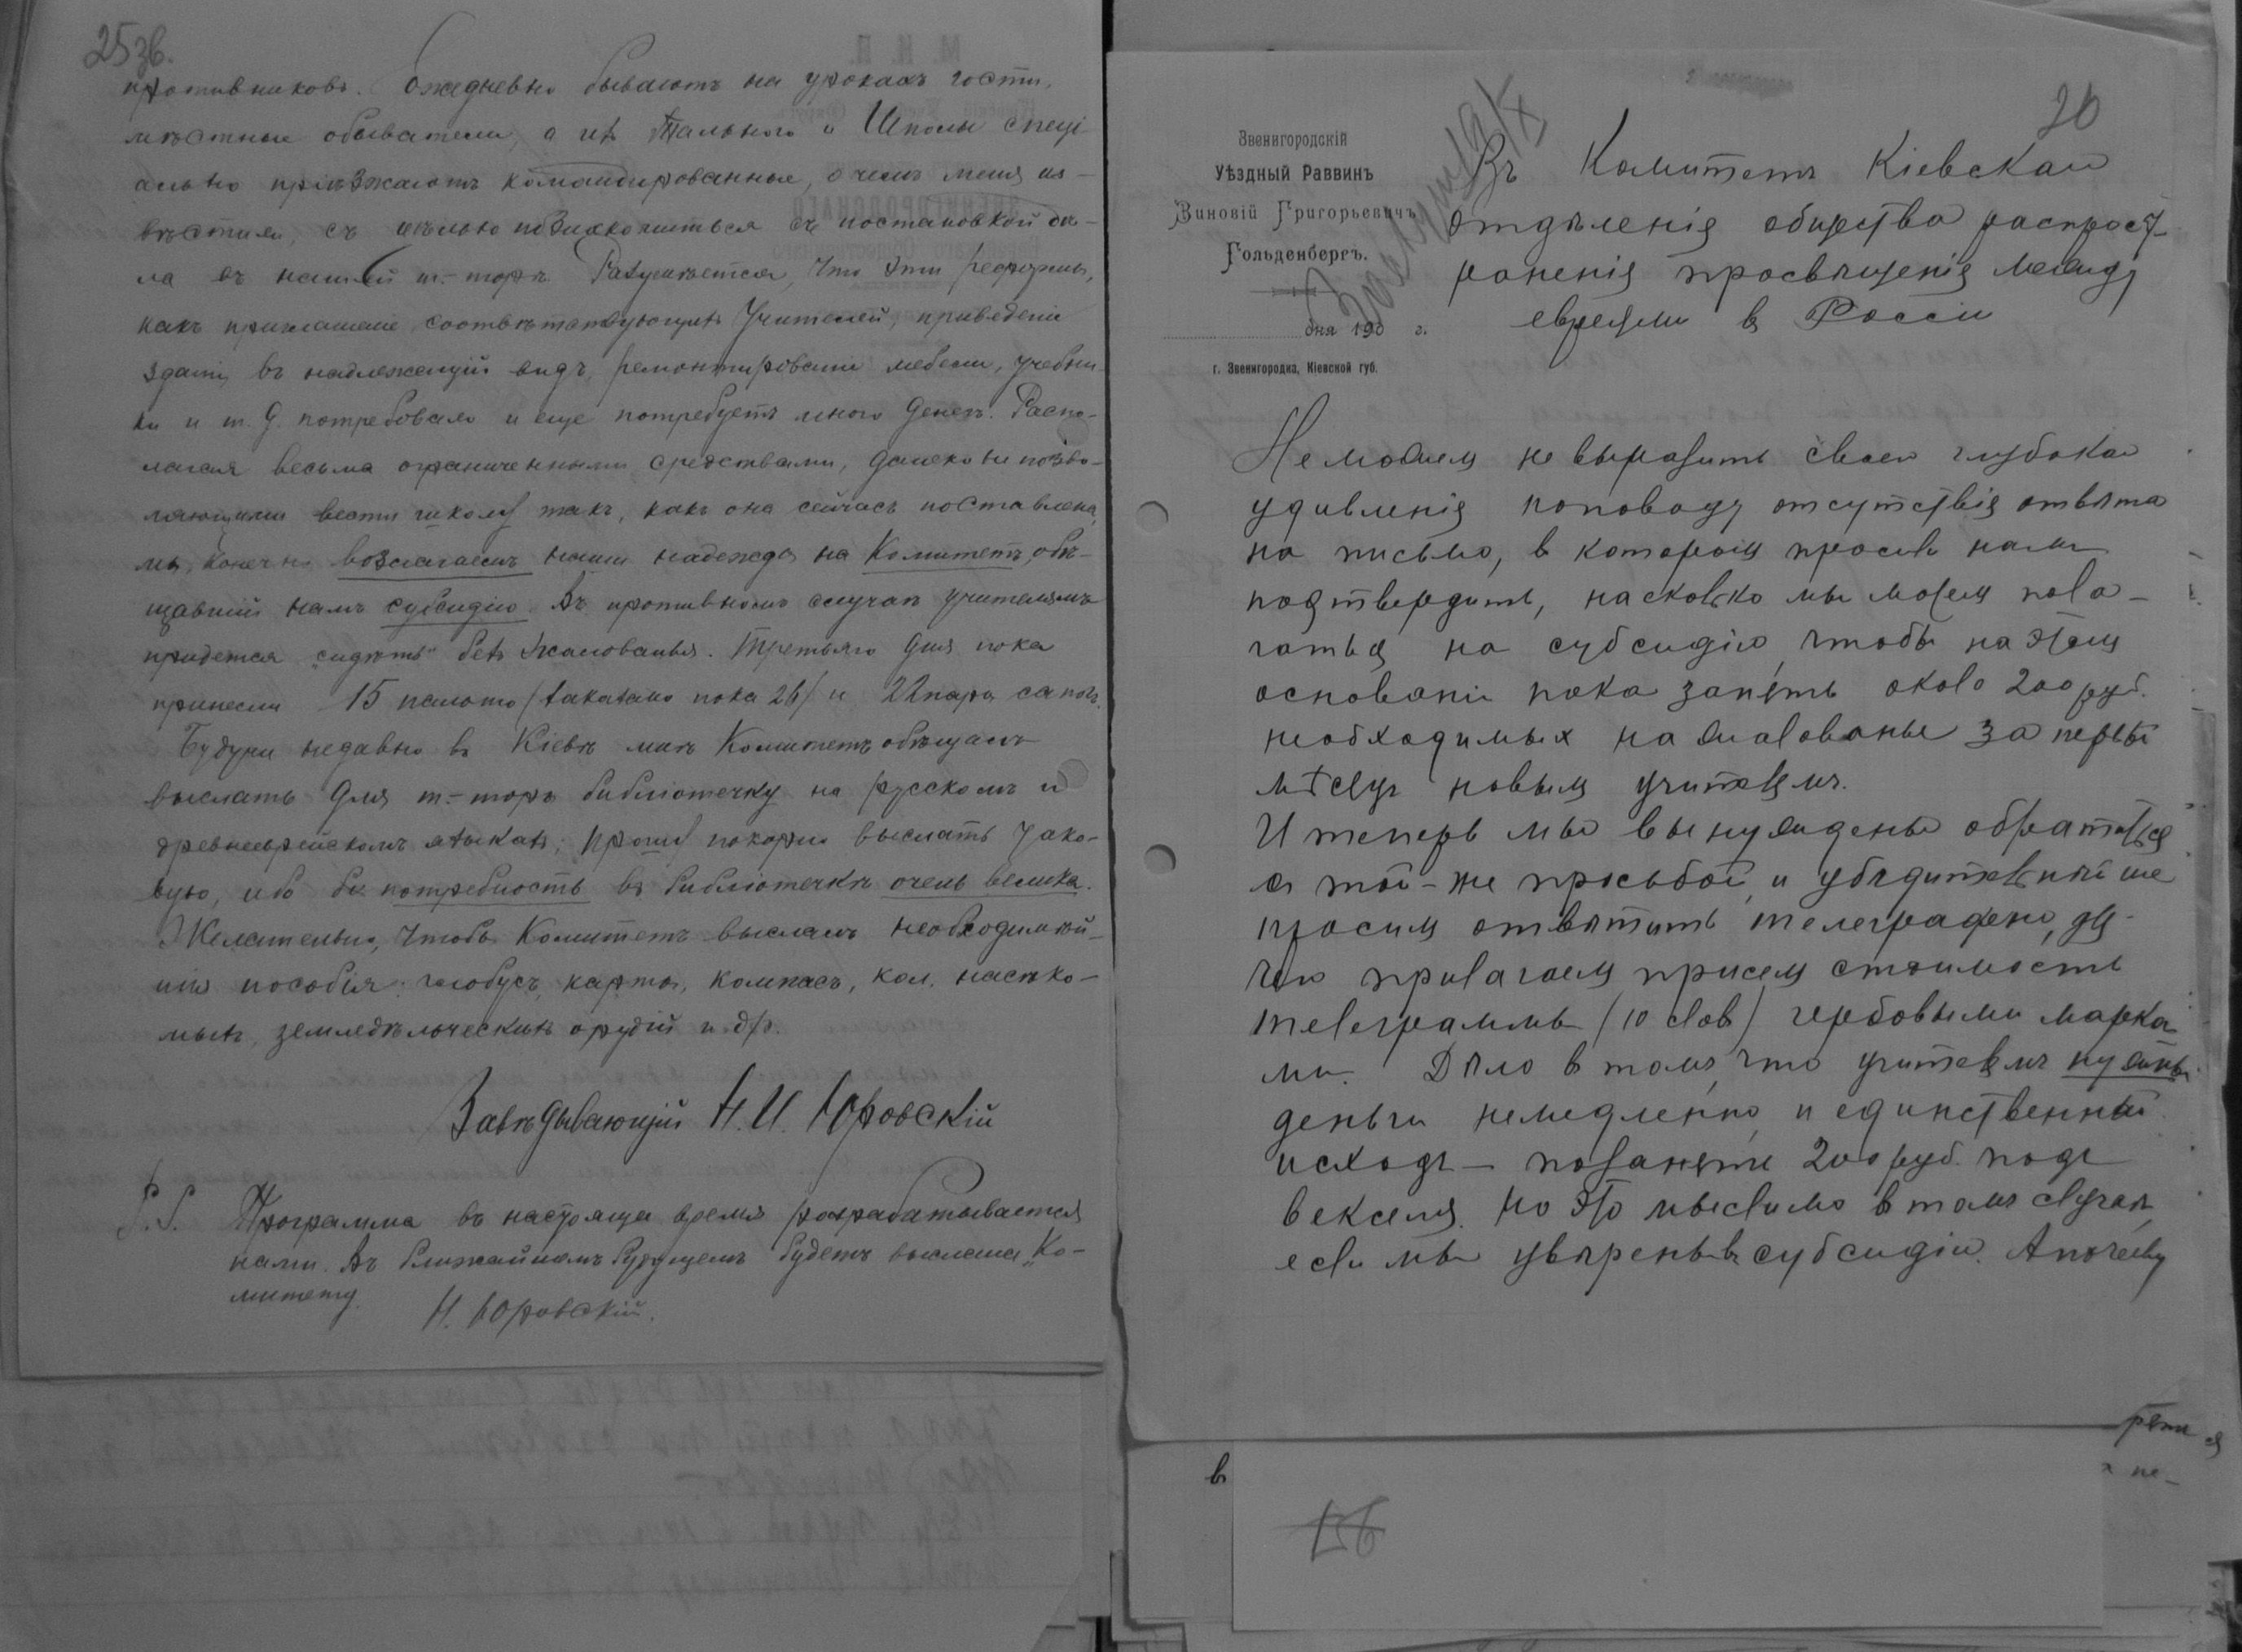 25 зв.
противниковъ. Ежедневно бываютъ на урокахъ гости,
мѣстные обыватели, а изъ Тального и Шполы спеці-
ально пріѣзжаютъ командированные, о чемъ меня из-
вѣстили, съ цѣлью познакомиться съ постановкой дѣ-
ла въ нашей т.-торѣ. Разумѣется, что эти реформы,
какъ приглашеніе соотвѣтствующихъ Учителей, приведеніе
зданія въ надлежащій видъ, ремонтированіе мебели, учебни-
ки и т. д. потребовало и еще потребуетъ много денегъ. Распо-
лагая весьма ограниченными средствами, далеко не позво-
ляющими вести школу такъ, какъ она сейчасъ поставлена,
мы, конечно возлагаемъ наши надежды на Комитетъ, обѣ-
щавшій намъ субсидію. Въ противномъ случаѣ учителямъ
придется „сидѣть" безъ жалованья. Третьяго дня пока
принесли 15 пальто (заказано пока 26) и 22 пары сапогъ.
Будучи недавно въ Кіевѣ мнѣ Комитетъ обѣщалъ
выслать для т.-торы библіотечку на русскомъ и
древнееврейскомъ языкахъ; прошу покорно выслать тако-
вую, ибо потребность въ библіотечкѣ очень велика.
Желательно, чтобъ Комитетъ выслалъ необходимѣй-
шія пособія: глобусъ, карты, компасъ, кол. насѣко-
мыхъ, земледѣльческихъ орудій и др.
Завѣдывающій Н. И. Юровскій
P.S. Программа въ настоящее время разрабатывается
нами. Въ ближайшемъ будущемъ будетъ выслана Ко-
митету.
Н. Юровскій.
26
Звенигородскій
Уѣздный Раввинъ
Зиновій Григорьевичъ
Гольденбергъ.
дня 190 г.
г. Звенигородка, Кіевской губ.
Въ Комитетъ Кіевскаго
отдѣленія общества распрост-
раненія просвѣщенія между
евреями в Россіи
Не можем не выразить своего глубокаго
удивленія поповоду отсутствія отвѣта
на письмо, в котором просили нам
подтвердить, насколько мы можем пола-
гаться на субсидію, чтобы на этом
основаніи пока занять около 200 руб.
необходимых на жалованье за первый
мѣсяц новым учителям.
И теперь мы вынуждены обратиться
с той-же просьбой и убѣдительнѣйше
просим отвѣтить телеграфено, для
чего прилагаем присем стоимость
телеграммы (10 слов) гербовыми марка-
ми. Дѣло в том, что учителям нужны
деньги немедленно, и единственный
исход — позанять 200 руб. под
векселя. Но это мыслимо в том случаѣ,
если мы увѣрены в субсидіи. А почему
в
156